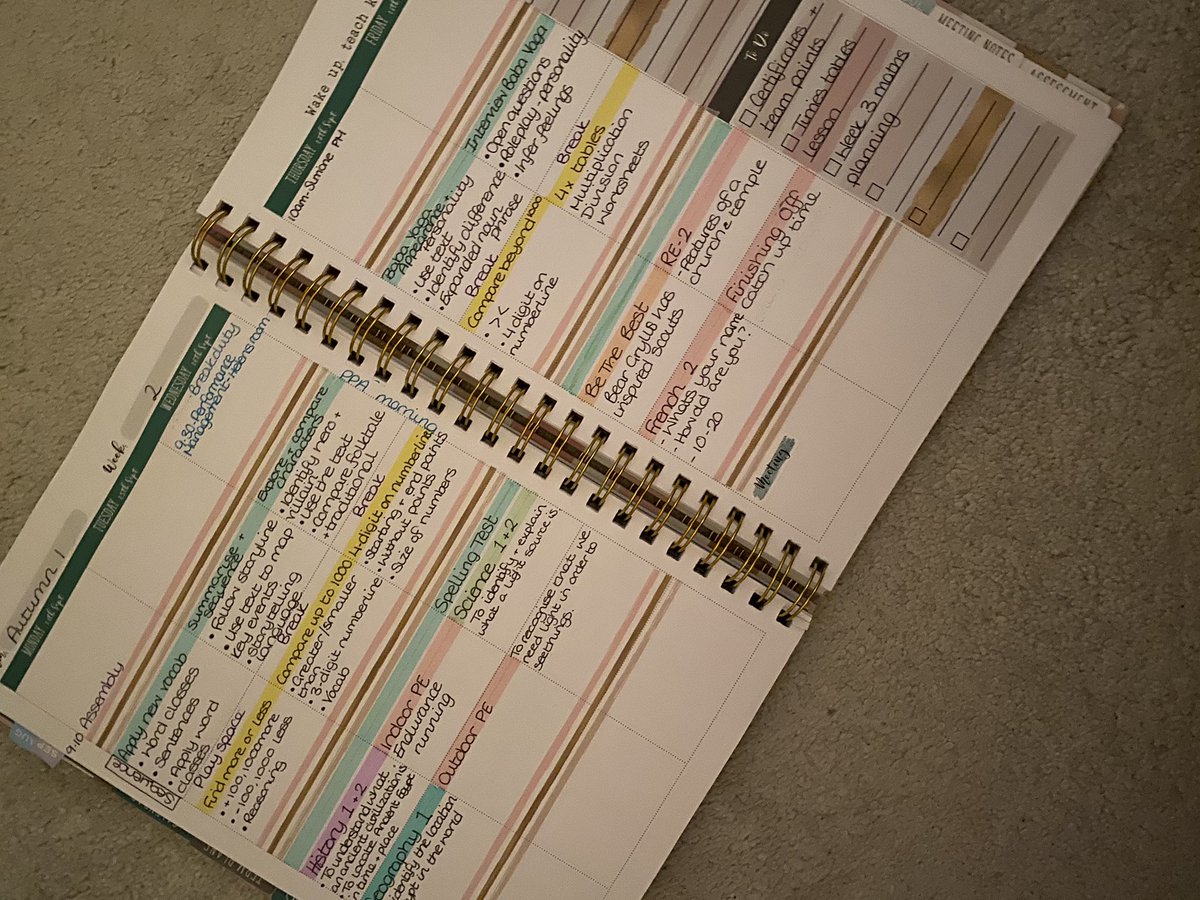 Autumn 1
Week:
2
MONDAY
TUESDAY
WEDNESDAY
9:10 Assembly
Breakduty
9:30 Performance
Management - Helens room
Sequence
Apply new vocab
• Word classes
• Sentences
• Apply word
classes
Play space
Find more or less
• +100, 1000 more
• -100, 1000 less
• Reasoning
Summarise +
sequence
• Follow storyline
• Use text to map
key events
• Storytelling
language
Break
Compare up to 1000
• Greater/smaller
than
• 3-digit numberline
• Vocab
Explore + compare
characters
• Identify hero +
villain
• Use the text
• Compare folktale
+ traditional
Break
4-digit on numberline
• Starting + end points
• Without points
• Size of numbers
PPA
morning
History 1+2
• To understand what
an ancient civilization is
• To locate Ancient Egypt
in time + place
Geography 1
identify the location
in the world
Indoor PE
Endurance
running
Outdoor PE
Spelling Test
Science 1+2
To identify + explain
what a light source is
To recognise that we
need light in order to
see things.
Wake up, teach
THURSDAY
FRIDAY
100m, Simone PM
Baba Yaga
Appearance +
Personality
• Use text
• Identify difference
• Expanded noun
phrase
Break
Compare beyond 1000
• > <
• 4 digit on
numberline
Interview Baba Yaga
• Open questions
• Roleplay - personality
• Infer feelings
Break
4x tables
Multiplication
Division
Worksheets
Be The Best
Bear Grylls has
inspired scouts
French 2
- Whats your name
- How old are you?
- 10-20
RE-2
- Features of a
church + temple
Finishing Off
Catch up time
Meeting
To Do
Certificates +
team points
Times tables
lesson
Week 3 maths
planning
MEETING NOTES
ASSESSMENT
SEP
AUG